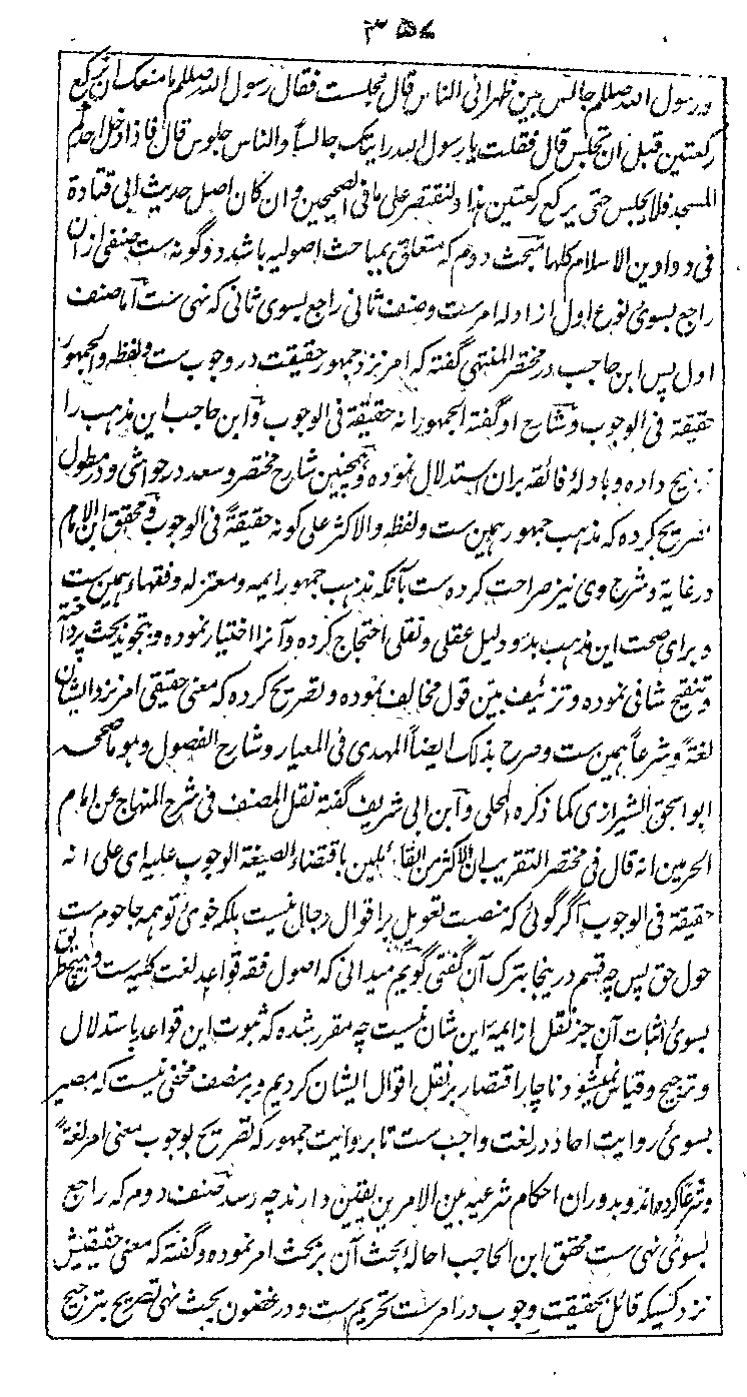 ۳۵۷
ورسول الله صللم جالس بین ظهرانی الناس قال فجلست فقال رسول الله صللم ما منعک ان ترکع
رکعتین قبل ان تجلس قال فقلت یا رسول الله رایتک جالساً والناس جلوس قال فاذا دخل احدکم
المسجد فلا یجلس حتی یرکع رکعتین هذا ولنقتصر علی ما فی الصحیحین وان کان اصل حدیث ابی قتادة
فی دواوین الاسلام کلها مبحث دوم که متعلق بمباحث اصولیه باشد دو گونه ست صنفی ازان
راجع بسوی نوع اول از ادله امرست وصنف ثانی راجع بسوی ثانی که نهی ست اما صنف
اول پس ابن حاجب در مختصر المنتهی گفته که امر نزد جمهور حقیقت در وجوب ست ولفظه والجمهور
حقیقة فی الوجوب وشارح او گفته الجمهور انه حقیقة فی الوجوب وابن حاجب این مذهب را
ترجیح داده و بادلهٔ فائقه بران استدلال نموده وهمچنین شارح مختصر و سعد در حواشی و در مطول
تصریح کرده که مذهب جمهور همین ست ولفظه والاکثر علی کونه حقیقةً فی الوجوب ومحقق ابن الامام
در غایة وشرح وی نیز صراحت کرده ست بآنکه مذهب جمهور ایمه ومعتزله وفقهاء همین ست
وبرای صحت این مذهب بدو دلیل عقلی ونقلی احتجاج کرده وآنرا اختیار نموده وبتجوید بحث پرداخته
وتنقیح شافی نموده وتزئیف بیّن قول مخالف نموده وتصریح کرده که معنی حقیقی امر نزد ایشان
لغةً وشرعاً همین ست وصرح بذلک ایضاً المهدی فی المعیار وشارح الفصول وهو ما صححه
ابو اسحق الشیرازی کما ذکره المحلی وابن ابی شریف گفته نقل المصنف فی شرح المنهاج عن امام
الحرمین انه قال فی مختصر التقریب ان الاکثر من القائلین باقتضاء الصیغة الوجوب علیه ای علی انه
حقیقة فی الوجوب اگر گوئی که منصبت تعویل بر اقوال رجال نیست بلکه خوی تو همه جا حوم ست
حول حق پس چه قسم درینجا بترک آن گفتی گویم میدانی که اصول فقه قواعد لغت کلیه ست وهیچ طریق
بسوی اثبات آن جز نقل از ایمهٔ این شان نیست چه مقرر شده که ثبوت این قواعد باستدلال
وترجیح وقیاس نمیشود ناچار اقتصار بر نقل اقوال ایشان کردیم وبر منصف مخفی نیست که مصیر
بسوی روایت احاد در لغت واجب ست تا بروایت جمهور که تصریح بوجوب معنی امر لغةً
وشرعاً کرده اند وبدوران احکام شرعیه بین الامرین یقین دارند چه رسد صنف دوم که راجع
بسوی نهی ست محقق ابن الحاجب احالهٔ بحث آن بر بحث امر نموده وگفته که معنی حقیقیش
نزد کسیکه قائل بحقیقت وجوب در امرست تحریم ست ودر غضون بحث نهی تصریح بترجیح